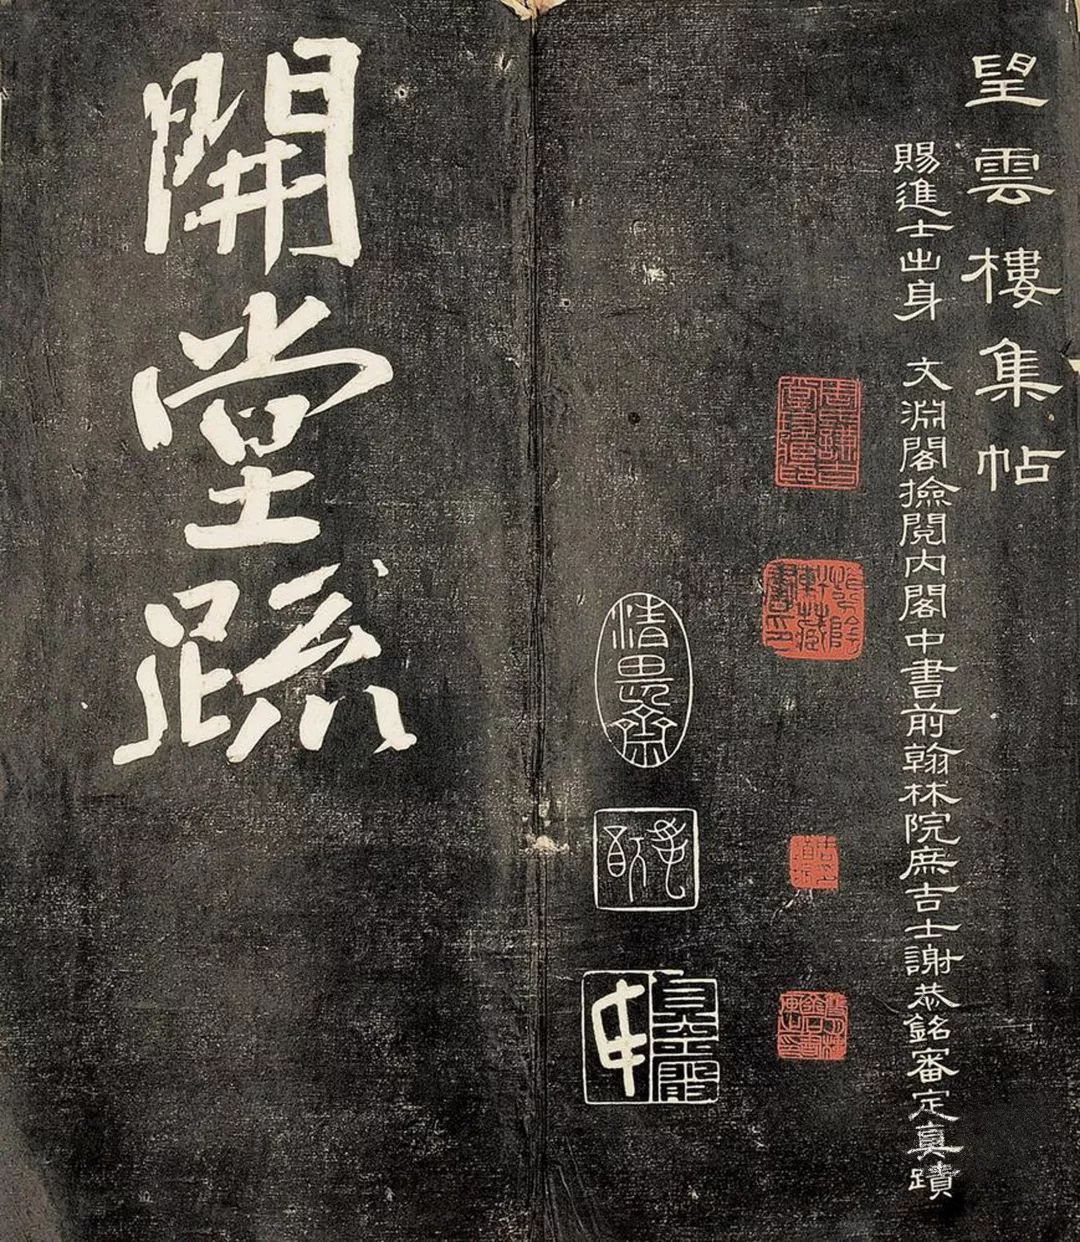 望雲樓集帖
賜進士出身 文淵閣撿閱內閣中書前翰林院庶吉士謝恭銘審定真蹟
清思齋
開堂疏